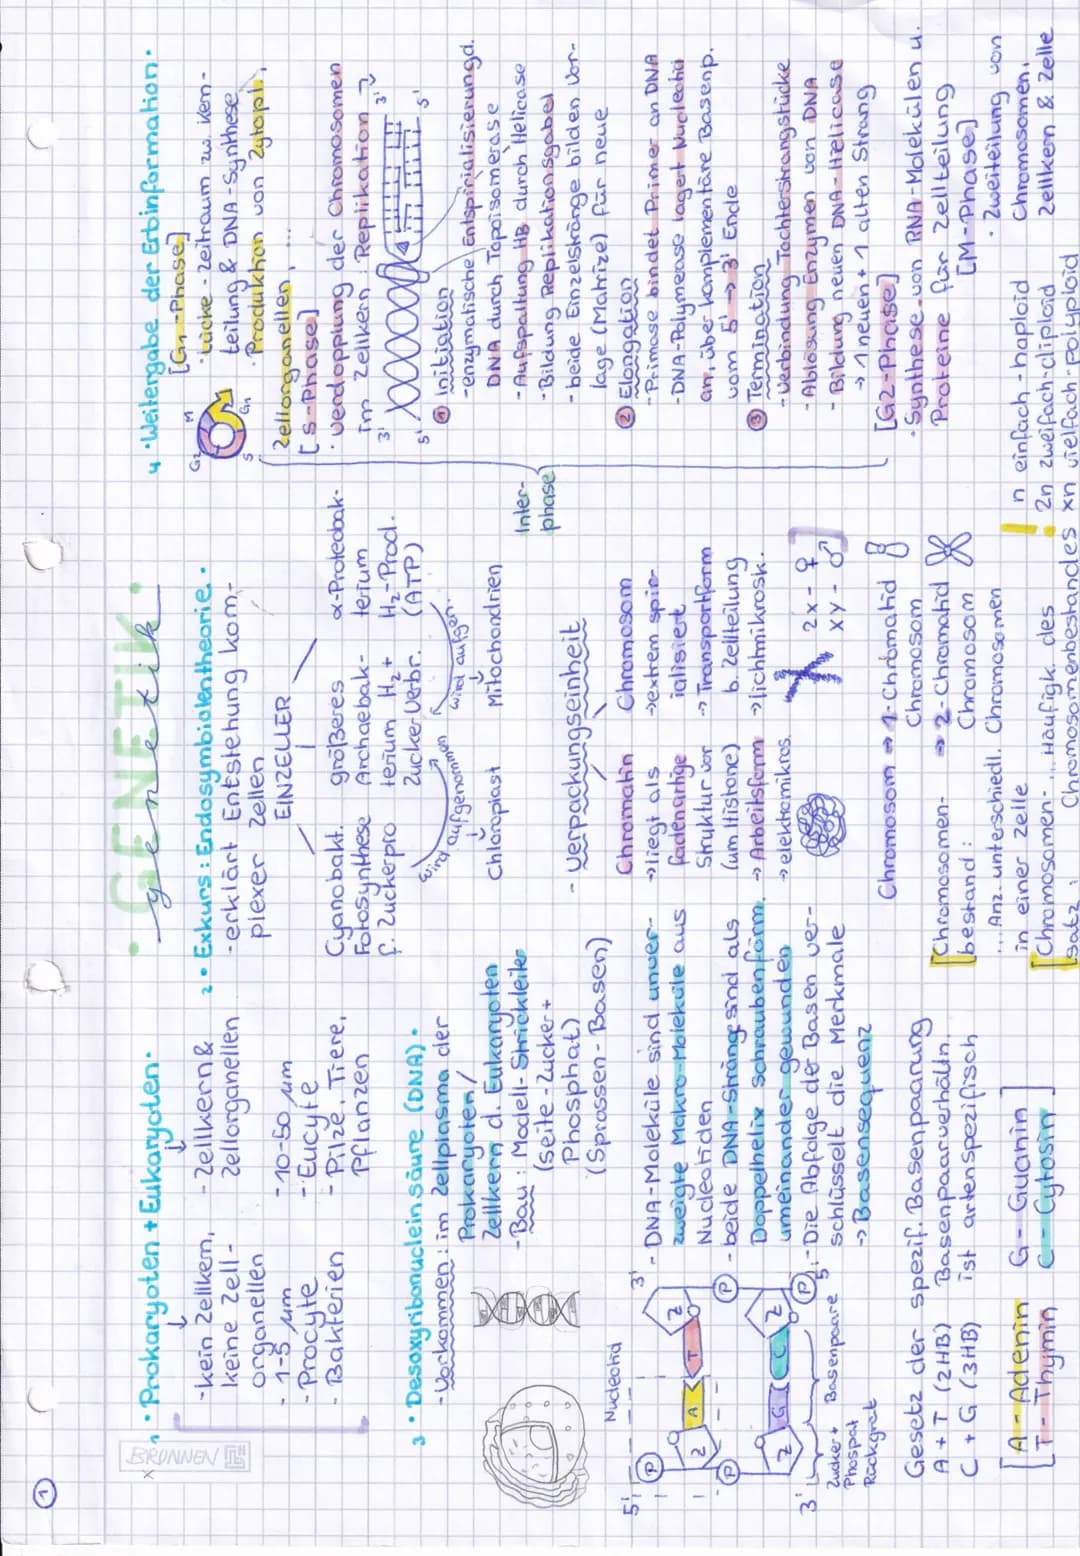 1
BRUNNEN
• GENETIK •
genetik
1 • Prokaryoten + Eukaryoten •
- kein Zellkern,
keine Zell-
organellen
- 1-5 µm
- Procyte
- Bakterien
- Zellkern &
Zellorganellen
- 10-50 µm
- Eucyte
- Pilze, Tiere,
Pflanzen
2 • Exkurs: Endosymbiontentheorie •
- erklärt Entstehung kom-
plexer Zellen
EINZELLER
Cyanobakt.
Fotosynthese
f. Zuckerpro
größeres
Archaebak-
terium H₂ +
Zucker Verbr.
α-Proteobak-
terium
H₂-Prod.
(ATP)
wird aufgenommen
wird aufgen.
Chloroplast
Mitochondrien
3 • Desoxyribonucleinsäure (DNA) •
- Vorkommen: im Zellplasma der
Prokaryoten/
Zellkern d. Eukaryoten
- Bau: Modell-Strickleiter
(Seite-Zucker+
Phosphat)
(Sprossen-Basen)
Nucleotid
5'
3'
P
Z
A
T
Z
P
P
Z
G
C
Z
P
3'
5'
Zucker+
Phospat
Rückgrat
Basenpaare
- DNA-Moleküle sind unver-
zweigte Makro-Moleküle aus
Nucleotiden
- beide DNA-Stränge sind als
Doppelhelix schraubenförm.
umeinander gewunden
- Die Abfolge der Basen ver-
schlüsselt die Merkmale
-> Basensequenz
Gesetz der spezif. Basenpaarung
A + T (2HB) Basenpaarverhältn.
C + G (3HB) ist artenspezifisch
A - Adenin
T - Thymin
G - Guanin
C - Cytosin
- Verpackungseinheit
Chromatin
-> liegt als
fadenartige
Struktur vor
(um Histone)
-> Arbeitsform
-> elektromikros.
Chromosom
-> extrem spir-
ialisiert
-> Transportform
b. Zellteilung
-> lichtmikrosk.
2x - ♀
xy - ♂
Chromosom => 1-Chromatid
Chromosom
=> 2-Chromatid
Chromosom
[Chromosomen-
bestand:
...Anz. unterschiedl. Chromosomen
in einer Zelle
[Chromosomen-
satz:
... Häufigk. des
Chromosomenbestandes
n einfach-haploid
2n zweifach-diploid
xn vielfach-polyploid
4 • Weitergabe der Erbinformation •
G2
M
G1
S
[G1-Phase]
• Lücke-Zeitraum zw. Kern-
teilung & DNA-Synthese
• Produktion von Zytopl.,
Zellorganellen, ...
[S-Phase]
• Verdopplung der Chromosomen
im Zellkern: Replikation
3'
5'
3'
5'
① Initiation
- enzymatische Entspirialisierung d.
DNA durch Topoisomerase
- Aufspaltung HB durch Helicase
- Bildung Replikationsgabel
- beide Einzelstränge bilden Vor-
lage (Matrize) für neue
② Elongation
- Primase bindet Primer an DNA
- DNA-Polymerase lagert Nucleotid
an, über komplementäre Basenp.
vom 5' -> 3' Ende
③ Termination
- Verbindung Tochterstrangstücke
- Ablösung Enzymen von DNA
- Bildung neuen DNA-Helicase
-> 1 neuen + 1 alten Strang
[G2-Phase]
• Synthese von RNA-Molekülen u.
Proteine für Zellteilung
Inter-
phase
[M-Phase]
• Zweiteilung von
Chromosomen,
Zellkern & Zelle